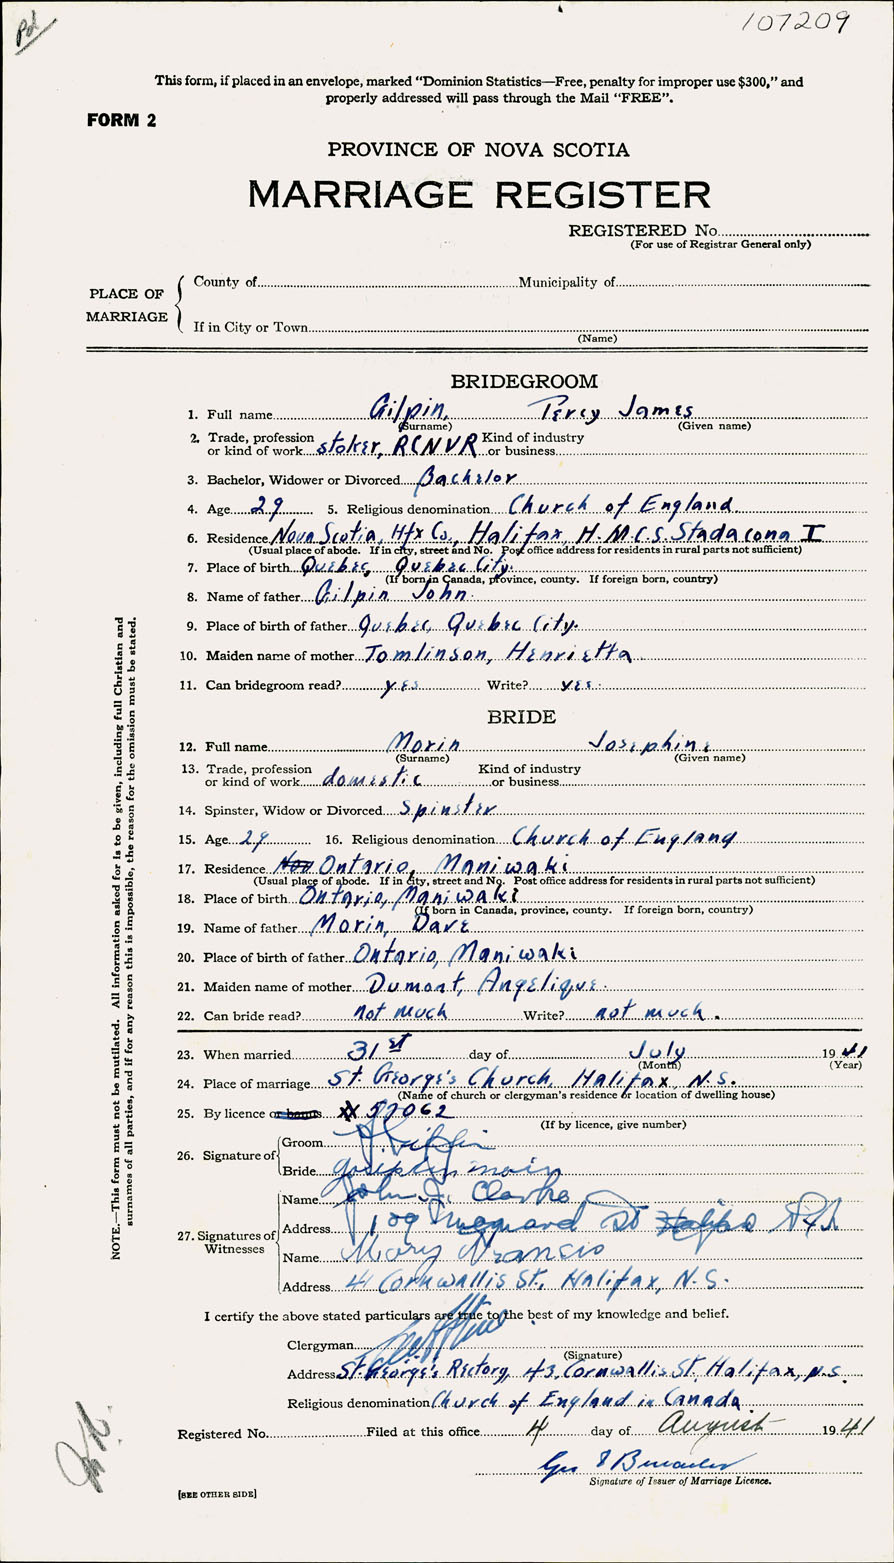 Pd
107209
This form, if placed in an envelope, marked "Dominion Statistics—Free, penalty for improper use $300," and
properly addressed will pass through the Mail "FREE".
FORM 2
PROVINCE OF NOVA SCOTIA
MARRIAGE REGISTER
REGISTERED No.
(For use of Registrar General only)
PLACE OF MARRIAGE
County of Municipality of
If in City or Town
(Name)
BRIDEGROOM
1. Full name Gilpin, Percy James
(Surname) (Given name)
2. Trade, profession or kind of work stoker, RCNVR Kind of industry or business
3. Bachelor, Widower or Divorced Bachelor
4. Age 29 5. Religious denomination Church of England
6. Residence Nova Scotia, Hfx Co., Halifax, H.M.C.S. Stadacona I
(Usual place of abode. If in city, street and No. Post office address for residents in rural parts not sufficient)
7. Place of birth Quebec, Quebec City.
(If born in Canada, province, county. If foreign born, country)
8. Name of father Gilpin John
9. Place of birth of father Quebec, Quebec City.
10. Maiden name of mother Tomlinson, Henrietta
11. Can bridegroom read? yes Write? yes.
BRIDE
12. Full name Morin Josephine
(Surname) (Given name)
13. Trade, profession or kind of work domestic Kind of industry or business
14. Spinster, Widow or Divorced Spinster
15. Age 29 16. Religious denomination Church of England
17. Residence Nov Ontario, Maniwaki
(Usual place of abode. If in city, street and No. Post office address for residents in rural parts not sufficient)
18. Place of birth Ontario, Maniwaki
(If born in Canada, province, county. If foreign born, country)
19. Name of father Morin, Dave
20. Place of birth of father Ontario, Maniwaki
21. Maiden name of mother Dumont, Angelique.
22. Can bride read? not much Write? not much.
23. When married 31st day of July 1941
(Month) (Year)
24. Place of marriage St. George's Church, Halifax, N.S.
(Name of church or clergyman's residence or location of dwelling house)
25. By licence or banns XX 57062
(If by licence, give number)
26. Signature of
Groom P Gilpin
Bride Josephine morin
27. Signatures of Witnesses
Name John J. Clarke
Address 109 St Halifax
Name Mary Francis
Address 41 Cornwallis St., Halifax, N.S.
I certify the above stated particulars are true to the best of my knowledge and belief.
Clergyman
(Signature)
Address St. George's Rectory, 43, Cornwallis St, Halifax, N.S.
Religious denomination Church of England in Canada
Registered No. Filed at this office 4 day of August 1941
Geo
Signature of Issuer of Marriage Licence.
[SEE OTHER SIDE]
NOTE.—This form must not be mutilated. All information asked for is to be given, including full Christian and
surnames of all parties, and if for any reason this is impossible, the reason for the omission must be stated.